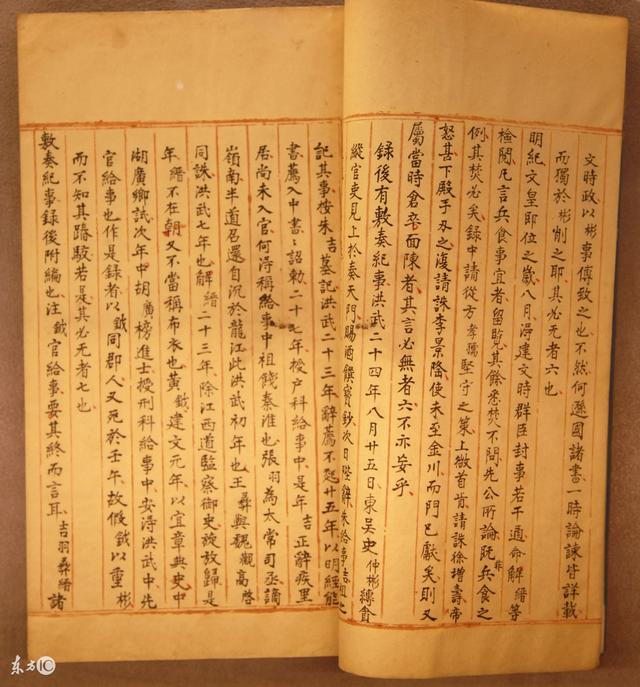 文時政以彬事傅致之也不然何遜國諸書一時論諫皆詳載
而獨於彬削之耶其必无者六也
明紀文皇即位之歲八月淂建文時群臣封事若干通命解縉等
檢閱凡言兵食事宜者留覧其餘悉焚不問先公所論既非兵食之
例其焚必矣録中請從方孝孺堅守之策上微首肯請誅徐增壽帝
怒甚下殿手刃之復請誅李景隆使未至金川而門已獻矣則又
屬當時倉卒面陳者其言必無者六不亦妄乎
録後有敷奏紀事洪武二十四年八月廿五日東吴史仲彬縳貪
縱官吏見上於奏天門賜酒饌寳鈔次日陛辭朱給事吉祖之
記其事按朱吉墓記洪武二十三年辭薦不起廿五年以明經能
書薦入中書詔勅二十七年授户科給事中是年吉正辭疾里
居尚未入官何淂稱給事中祖餞秦淮也張羽為太常司丞謫
嶺南半道召還自沉於龍江此洪武初年也王彛與魏觀高啓
同誅洪武七年也解縉二十三年除江西道監察御史旋放歸是
年縉不在朝又不當稱布衣也黄鉞建文元年以宜章典史中
湖廣鄉試次年中胡廣榜進士授刑科給事中安淂洪武中先
官給事也作是録者以鉞同郡人又死於壬午故假鉞以重彬
而不知其踳駁若是其必无者七也
敷奏紀事録後附編也注鉞官給事要其終而言耳吉羽彛縉諸
东方IC